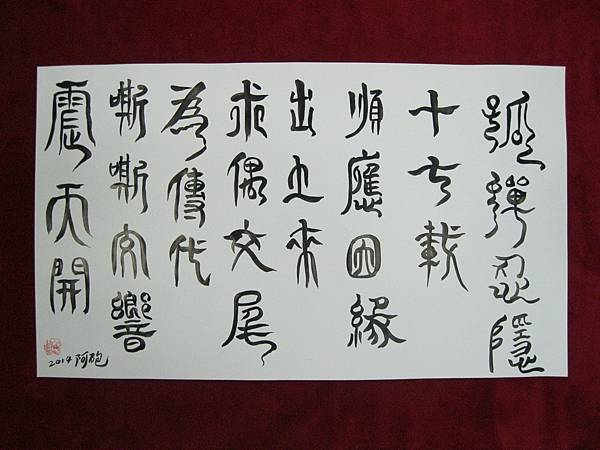 蟬忍隱
十七載
順應因緣
出土來
求偶交尾
為傳代
嘶嘶交響
震天開
2014 阿砲